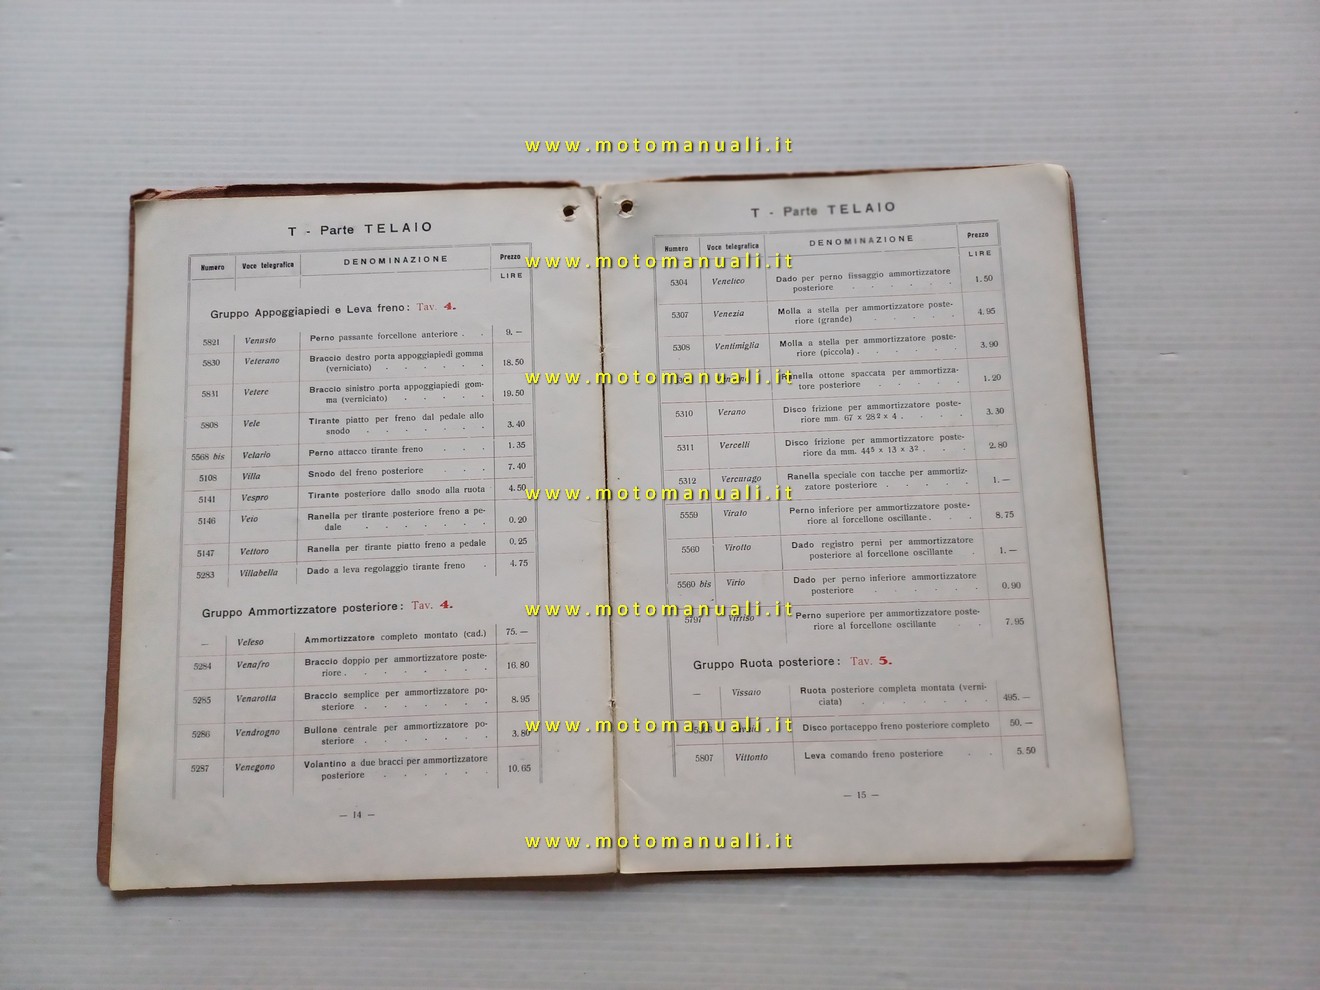 www.motomanuali.it
T - Parte TELAIO
Numero Voce telegrafica DENOMINAZIONE Prezzo
LIRE
Gruppo Appoggiapiedi e Leva freno: Tav. 4.
5821 Venusto Perno passante forcellone anteriore . . 9.—
5830 Veterano Braccio destro porta appoggiapiedi gomma
(verniciato) . . . . . . 18.50
5831 Vetere Braccio sinistro porta appoggiapiedi gom-
ma (verniciato) . . . . . 19.50
5808 Vele Tirante piatto per freno dal pedale allo
snodo . . . . . . . 3.40
5568 bis Velario Perno attacco tirante freno . . . 1.35
5108 Villa Snodo del freno posteriore . . . 7.40
5141 Vespro Tirante posteriore dallo snodo alla ruota 4.50
5146 Veio Ranella per tirante posteriore freno a pe-
dale . . . . . . . 0.20
5147 Vettoro Ranella per tirante piatto freno a pedale 0.25
5283 Villabella Dado a leva regolaggio tirante freno . 4.75
Gruppo Ammortizzatore posteriore: Tav. 4.
— Veleso Ammortizzatore completo montato (cad.) 75.—
5284 Venafro Braccio doppio per ammortizzatore poste-
riore . . . . . . . 16.80
5285 Venarotta Braccio semplice per ammortizzatore po-
steriore . . . . . . . 8.95
5286 Vendrogno Bullone centrale per ammortizzatore po-
steriore . . . . . . . 3.80
5287 Venegono Volantino a due bracci per ammortizzatore
posteriore . . . . . . 10.65
— 14 —
T - Parte TELAIO
Numero Voce telegrafica DENOMINAZIONE Prezzo
LIRE
5304 Venetico Dado per perno fissaggio ammortizzatore
posteriore . . . . . . 1.50
5307 Venezia Molla a stella per ammortizzatore poste-
riore (grande) . . . . . 4.95
5308 Ventimiglia Molla a stella per ammortizzatore poste-
riore (piccola) . . . . . . 3.90
Ranella ottone spaccata per ammortizza-
tore posteriore . . . . . 1.20
5310 Verano Disco frizione per ammortizzatore poste-
riore mm. 67 x 28² x 4 . . . . 3.30
5311 Vercelli Disco frizione per ammortizzatore poste-
riore da mm. 44⁵ x 13 x 3² . . . 2.80
5312 Vercurago Ranella speciale con tacche per ammortiz-
zatore posteriore . . . . . 1.—
5559 Virato Perno inferiore per ammortizzatore poste-
riore al forcellone oscillante . . . 8.75
5560 Virotto Dado registro perni per ammortizzatore
posteriore al forcellone oscillante . 1.—
5560 bis Virio Dado per perno inferiore ammortizzatore
posteriore . . . . . . 0.90
5797 Virriso Perno superiore per ammortizzatore poste-
riore al forcellone oscillante . . 7.95
Gruppo Ruota posteriore: Tav. 5.
— Vissato Ruota posteriore completa montata (verni-
ciata) . . . . . . . 495.—
Disco portaceppo freno posteriore completo 50.—
5807 Vittonto Leva comando freno posteriore . . 5.50
— 15 —
www.motomanuali.it
www.motomanuali.it
www.motomanuali.it
www.motomanuali.it
www.motomanuali.it
www.motomanuali.it